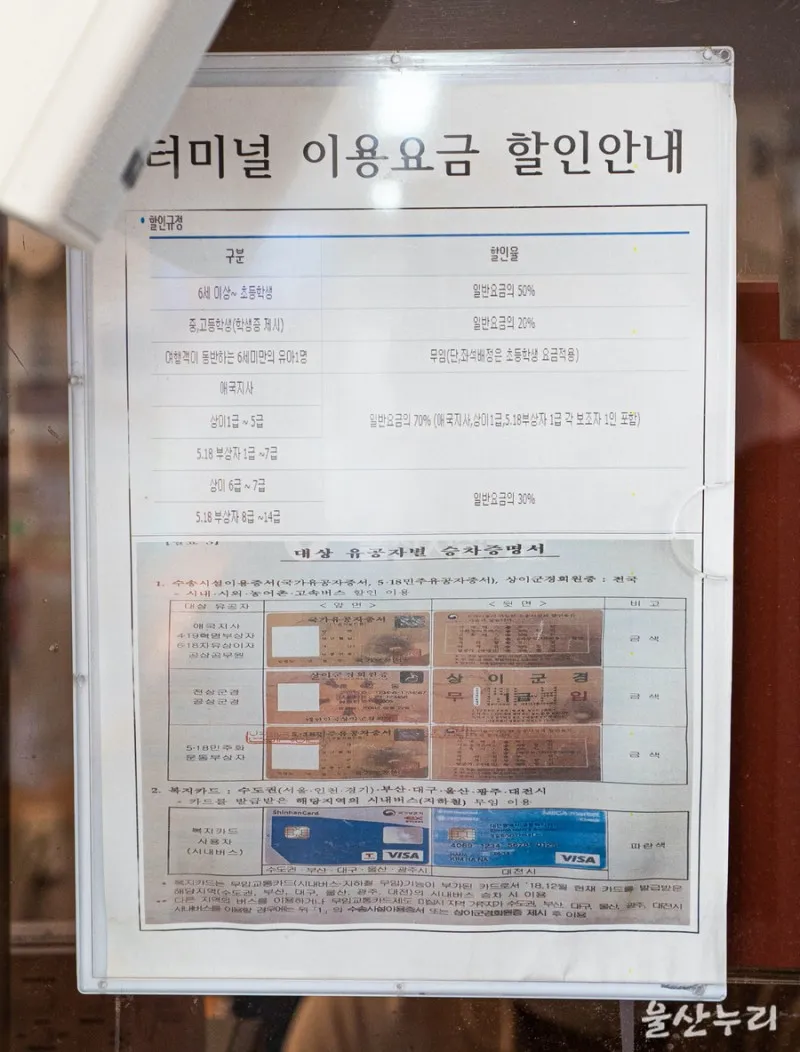 터미널 이용요금 할인안내
• 할인규정
구분 할인율
6세 이상~ 초등학생 일반요금의 50%
중,고등학생(학생증 제시) 일반요금의 20%
여행객이 동반하는 6세미만의 유아1명 무임(단,좌석배정은 초등학생 요금적용)
애국지사
상이1급 ~ 5급 일반요금의 70% (애국지사,상이1급,5.18부상자 1급 각 보조자 1인 포함)
5.18 부상자 1급 ~7급
상이 6급 ~ 7급 일반요금의 30%
5.18 부상자 8급 ~14급
대상 유공자별 승차증명서
1. 수송시설이용증서(국가유공자증서, 5·18민주유공자증서), 상이군경회원증 : 전국
- 시내·시외·농어촌·고속버스 할인 이용
대상 유공자 <앞 면> <뒷 면> 비 고
애국지사
4·19혁명부상자
공상공무원
국가유공자증서
금 색
전상군경
공상군경
상이군경회원증
상 이 군 경
무 임
금 색
5·18민주화
운동부상자
금 색
2. 복지카드 : 수도권(서울·인천·경기)·부산·대구·울산·광주·대전시
- 카드를 발급받은 해당지역의 시내버스(지하철) 무임 이용
복지카드
사용자
(시내버스)
ShinhanCard
VISA
VISA
파란색
수도권·부산·대구·울산·광주시 대전시
* 복지카드는 무임교통카드(시내버스·지하철 무임)기능이 부가된 카드로서 '18.12월 현재 카드를 발급받은
해당지역(수도권, 부산, 대구, 울산, 광주, 대전)의 시내버스 승차 시 이용
울산누리